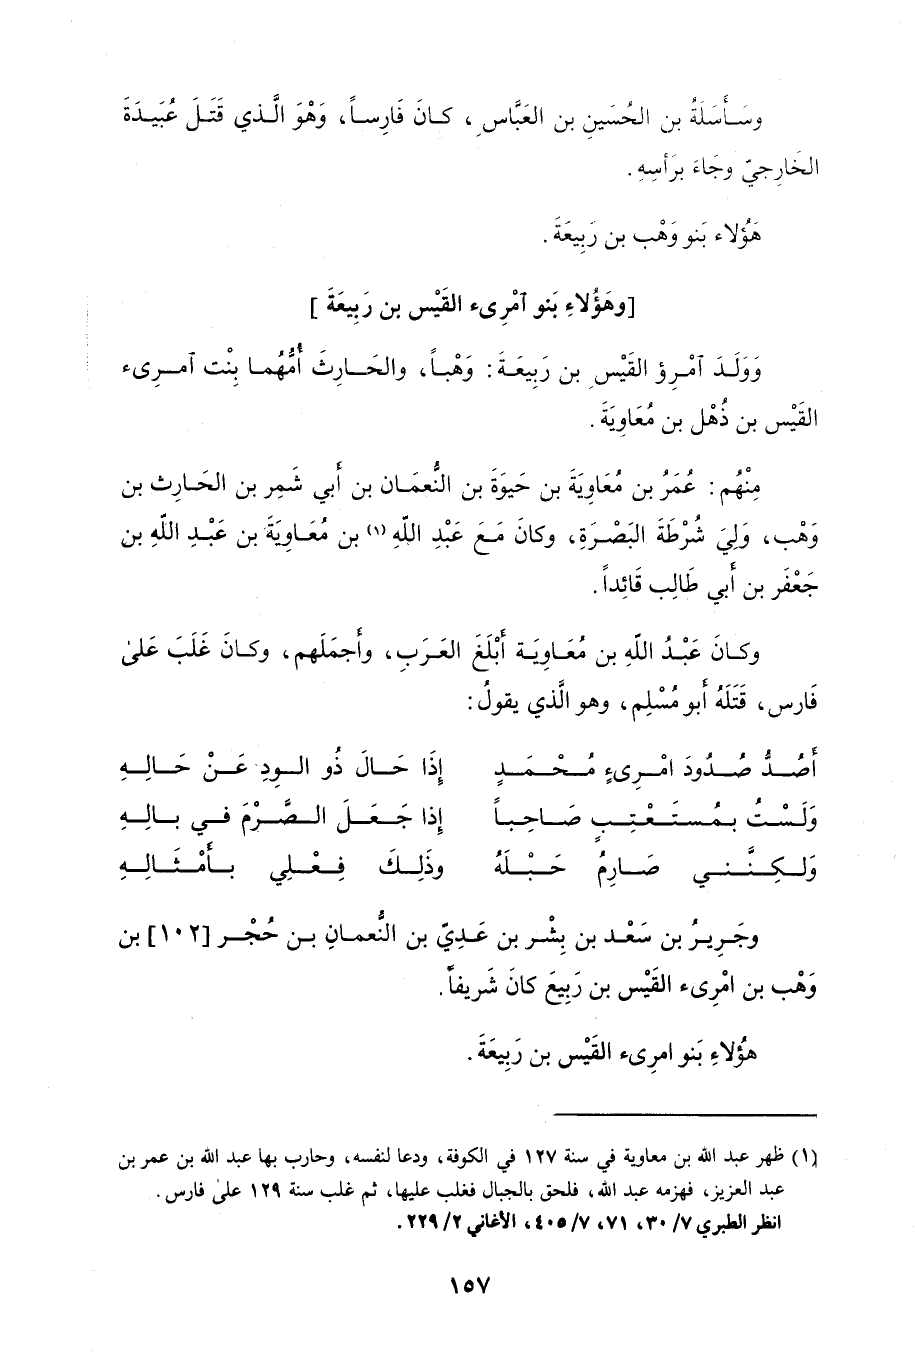 وسَأَسَلَةُ بن الحُسَينِ بن العَبَّاسِ ، كانَ فَارِساً، وَهْوَ الَّذي قَتَلَ عُبَيدَةَ
الخَارِجيّ وجَاءَ بَرَأسِهِ .
هَؤُلاء بَنو وَهْب بن رَبِيعَةَ .
[وهَؤُلاءِ بَنو آمْرِىء القَيْس بن رَبِيعَةَ ]
وَوَلَدَ آمْرِؤ القَيْسِ بن رَبِيعَةَ : وَهْباً، والحَارِثَ أُمُّهُما بِنْت آمرِىء
القَيْس بن ذُهْل بن مُعَاوِيَةَ .
مِنْهُم : عُمَرُ بن مُعَاوِيَةَ بن حَيوَةَ بن النُّعمَان بن أَبي شَمِر بن الحَارث بن
وَهْب، وَلِيَ شُرْطَةَ البَصْرَةِ، وكانَ مَعَ عَبْدِ اللهِ (١) بن مُعَاوِيَةَ بن عَبْدِ اللهِ بن
جَعْفَر بن أَبي طَالِب قَائِداً .
وكانَ عَبْدُ اللهِ بن مُعَاوِيَة أَبْلَغَ العَرَبِ، وأَجمَلَهم، وكانَ غَلَبَ عَلىٰ
فَارس، قَتَلَهُ أَبو مُسْلِم، وهو الَّذي يقولُ :
أَصُدُّ صُدُودَ امْرِىءٍ مُحْمَدٍ إِذَا حَالَ ذُو الودِ عَنْ حَالِهِ
وَلَسْتُ بمُستَعْتِبٍ صَاحِباً إِذا جَعَلَ الصَّرْمَ في بالِهِ
وَلكِنَّني صَارِمُ حَبْلَهُ وذَلِكَ فِعْلي بأَمْثَالِهِ
وجَرِيرُ بن سَعْد بن بِشْر بن عَدِيّ بن النُّعمانِ بن حُجْر [١٠٢] بن
وَهْب بن امْرِىء القَيْس بن رَبِيعَ كانَ شَرِيفاً .
هؤُلاءِ بَنو امرِىء القَيْس بن رَبِيعَةَ .
(١) ظهر عبد الله بن معاوية في سنة ١٢٧ في الكوفة، ودعا لنفسه، وحارب بها عبد الله بن عمر بن
عبد العزيز، فهزمه عبد الله، فلحق بالجبال فغلب عليها، ثم غلب سنة ١٢٩ علىٰ فارس .
انظر الطبري ٧/ ٣٠، ٧١، ٧/ ٤٠٥، الأغاني ٢/ ٢٢٩ .
١٥٧